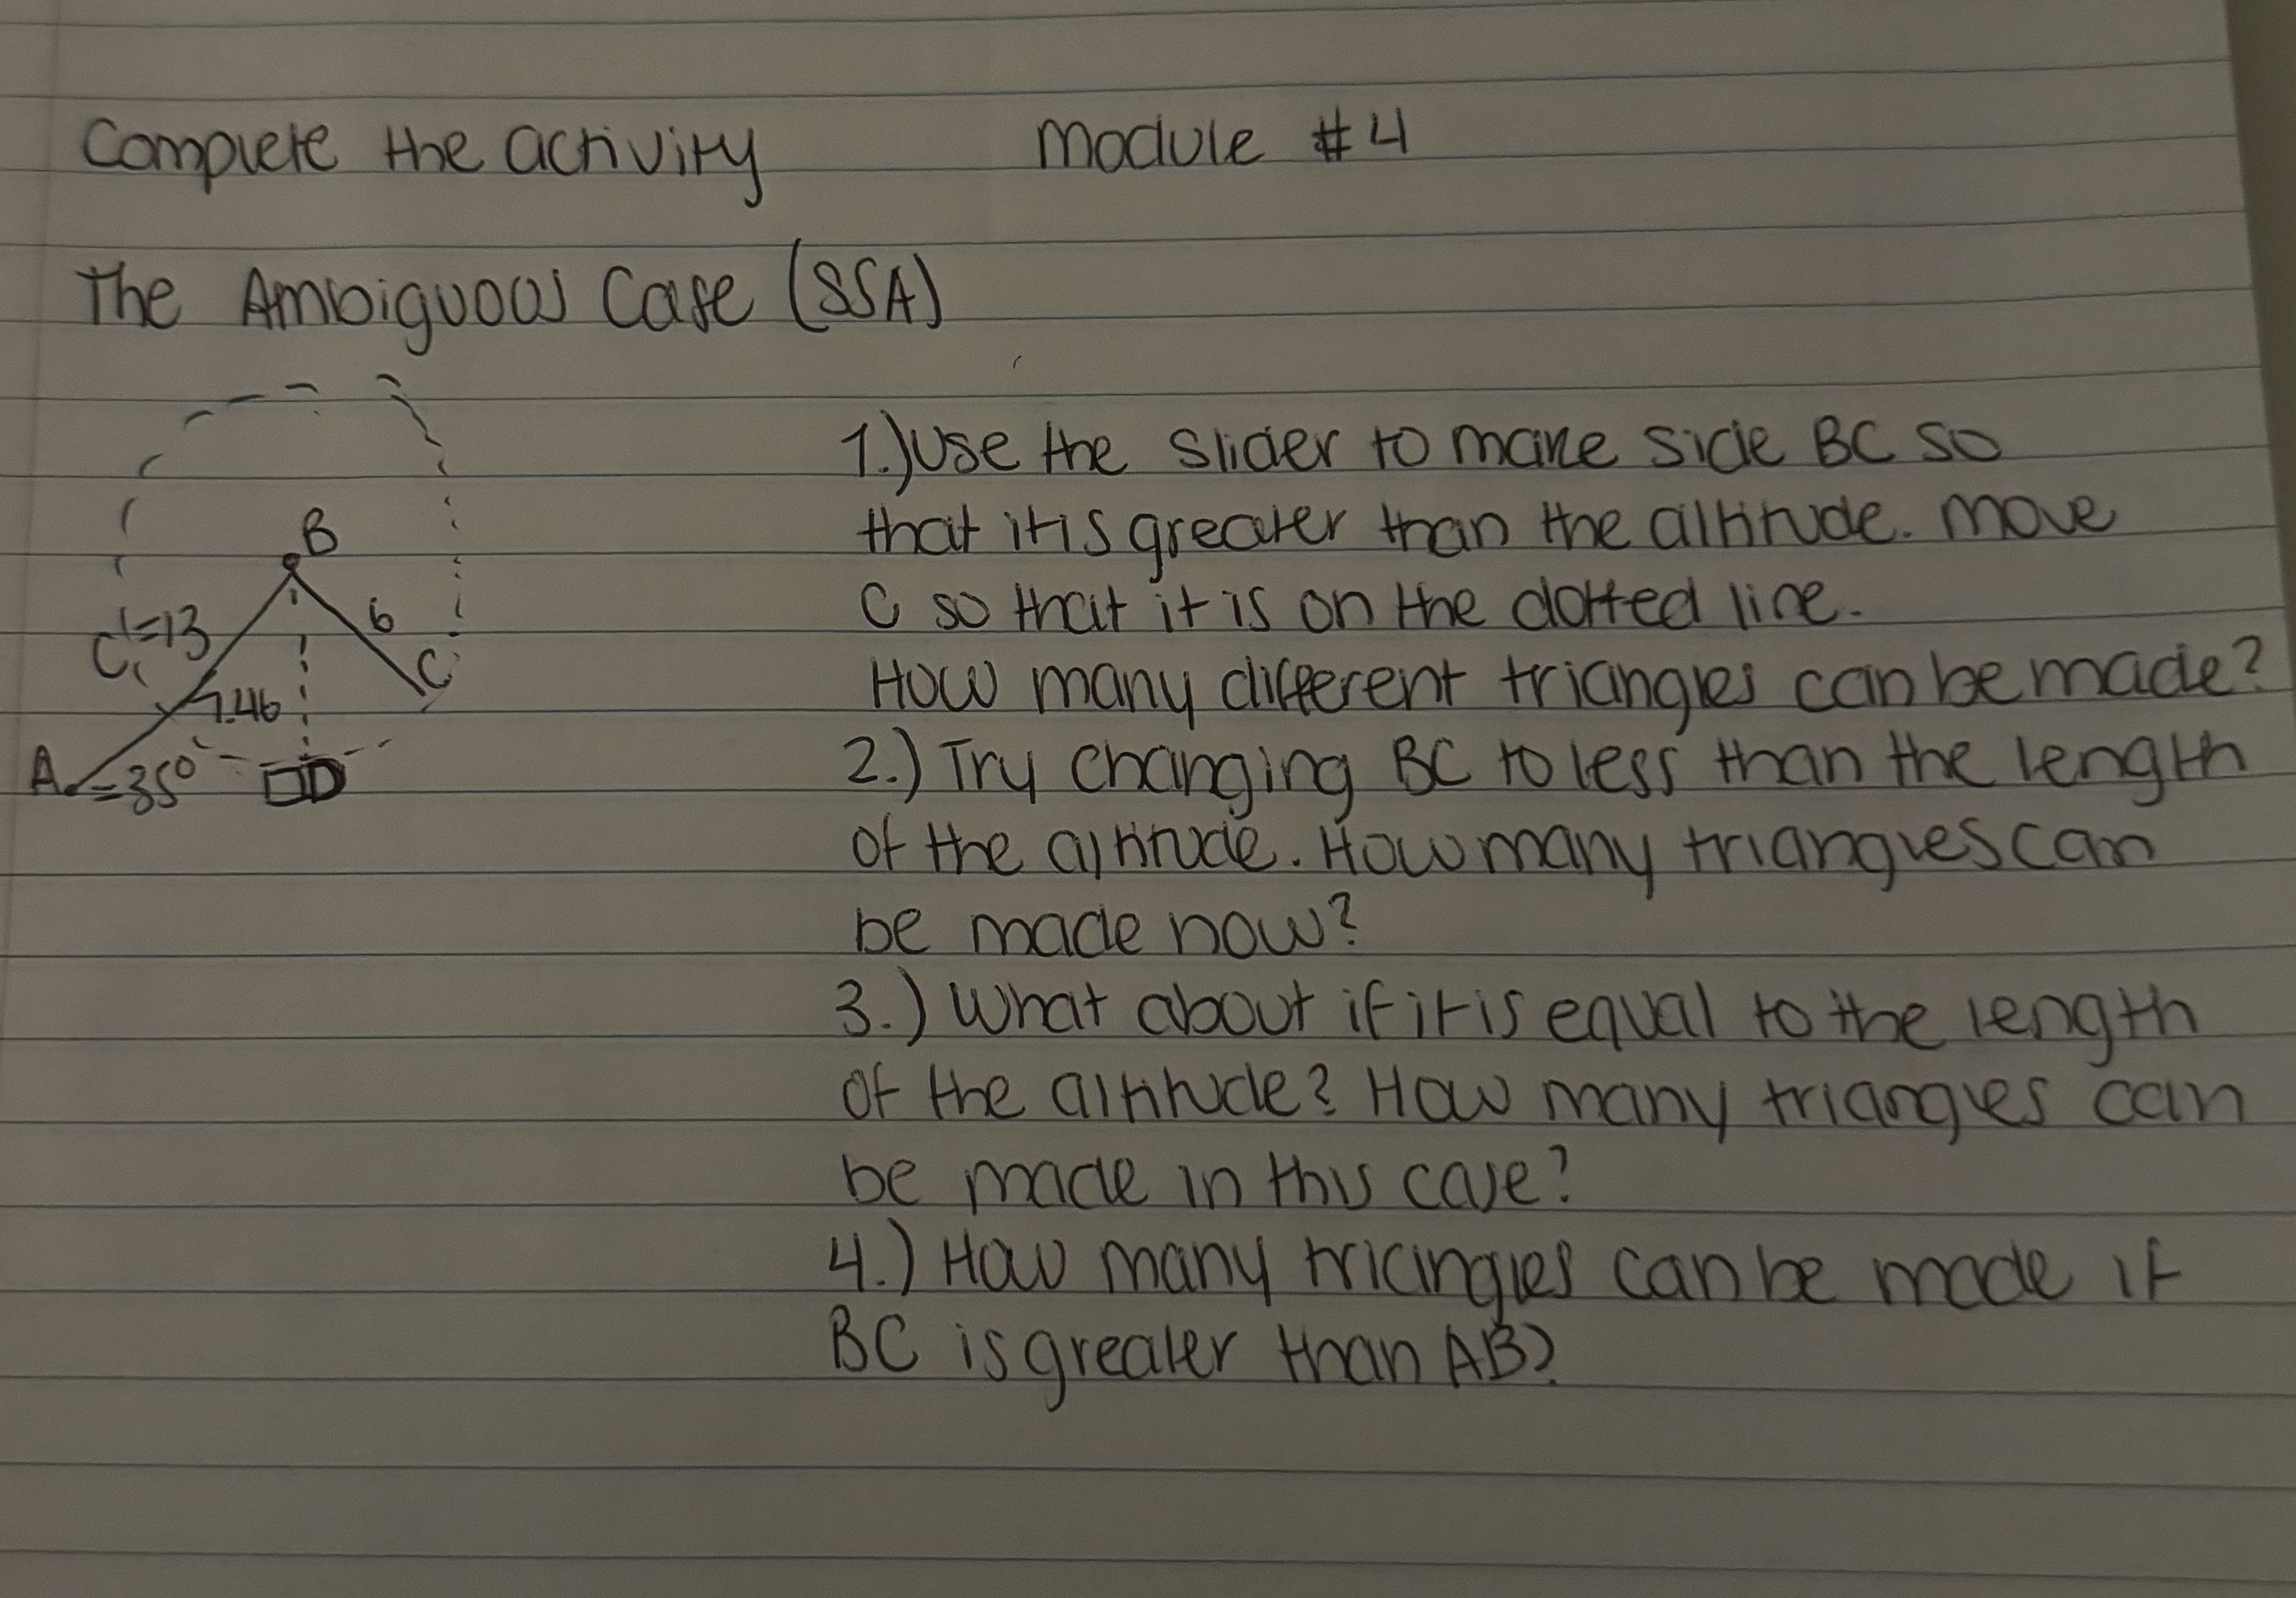 Complete the activity Module #4
The Ambiguous Case (SSA)
B
C=13
6
C
7.46
A
=35°
D
1.) Use the slider to make side BC so
that it is greater than the altitude. Move
C so that it is on the dotted line.
How many different triangles can be made?
2.) Try changing BC to less than the length
of the altitude. How many triangles can
be made now?
3.) What about if it is equal to the length
of the altitude? How many triangles can
be made in this case?
4.) How many triangles can be made if
BC is greater than AB?